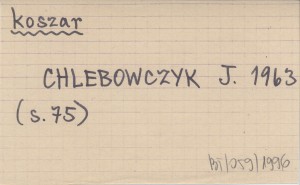 koszar
CHLEBOWCZYK J. 1963
(s.75)
BT/059/1996